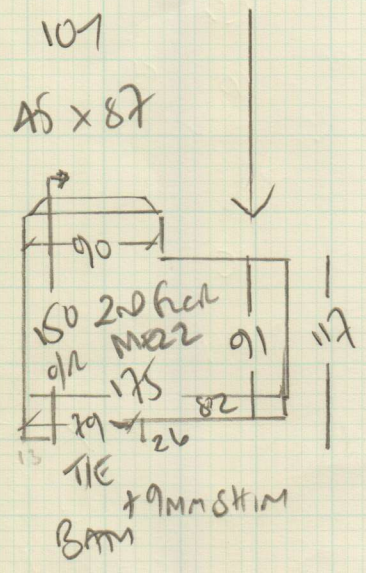 101
45 x 87
90
150 2ND FLOOR
MEZZ 91 117
O/A
175
82
79 26
13
TIE
+9MM SHIM
BAM